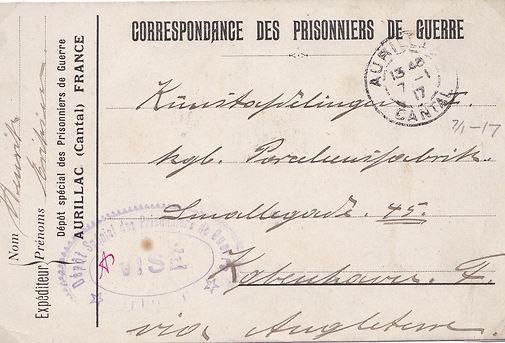 CORRESPONDANCE DES PRISONNIERS DE GUERRE
AURILLAC
13 45
7 - 1
17
CANTAL
7/1-17
kgl. Porcelænsfabrik.
Smallegade. 45.
Kjøbenhavn. F.
via Angleterre.
Dépôt Spécial des Prisonniers de Guerre
VISÉ
Nom
Expéditeur
Prénoms
Dépôt spécial des Prisonniers de Guerre
AURILLAC (Cantal) FRANCE